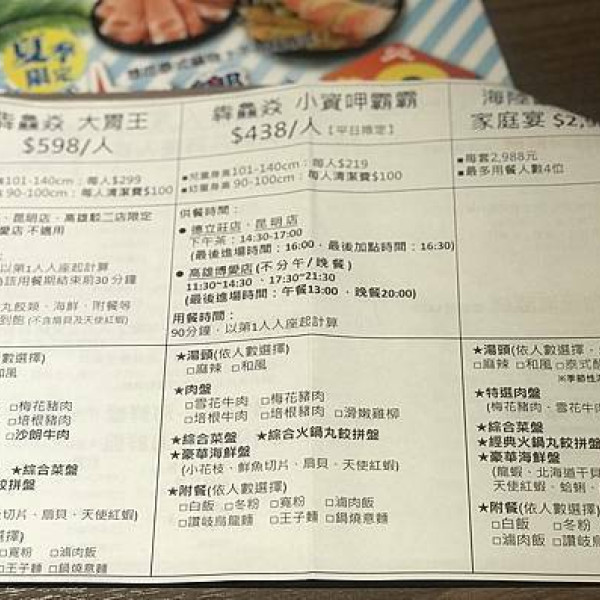 夏季
限定
犇鱻焱 大胃王
$598/人
101-140cm：每人$299
90-100cm：每人清潔費$100
、昆明店、高雄駁二店限定
愛店 不適用
以第1人人座起計算
)該用餐期結束前30分鐘
丸餃類、海鮮、附餐等
到飽 (不含扇貝及天使紅蝦)
人數選擇)
和風
□梅花豬肉
□培根豬肉
□沙朗牛肉
★綜合菜盤
餃拼盤
切片、扇貝、天使紅蝦)
選擇)
□寬粉 □滷肉飯
□王子麵 □鍋燒意麵
犇鱻焱 小資呷霸霸
$438/人【平日限定】
●兒童身高101-140cm：每人$219
●幼童身高 90-100cm：每人清潔費$100
供餐時間：
● 德立莊店、昆明店
下午茶：14:30-17:00
(最後進場時間：16:00，最後加點時間：16:30)
● 高雄博愛店(不分午/晚餐)
11:30~14:30 、17:30~21:30
(最後進場時間：午餐13:00，晚餐20:00)
用餐時間：
90分鐘，以第1人人座起計算
★湯頭(依人數選擇)
□麻辣 □和風
★肉盤
□雪花牛肉 □梅花豬肉
□培根牛肉 □培根豬肉 □滑嫩雞柳
★綜合菜盤 ★綜合火鍋丸餃拼盤
★豪華海鮮盤
(小花枝、鮮魚切片、扇貝、天使紅蝦)
★附餐(依人數選擇)
□白飯 □冬粉 □寬粉 □滷肉飯
□讚岐烏龍麵 □王子麵 □鍋燒意麵
海陸
家庭宴 $2,
■每套2,988元
■最多用餐人數4位
★湯頭(依人數選擇
□麻辣 □和風 □泰式酸
※季節性
★特選肉盤
(梅花豬肉、雪花牛
★綜合菜盤
★經典火鍋丸餃拼盤
★豪華海鮮盤
(龍蝦、北海道干貝
天使紅蝦、蛤蜊、
★附餐(依人數選擇)
□白飯 □冬粉
□滷肉飯 □讚岐